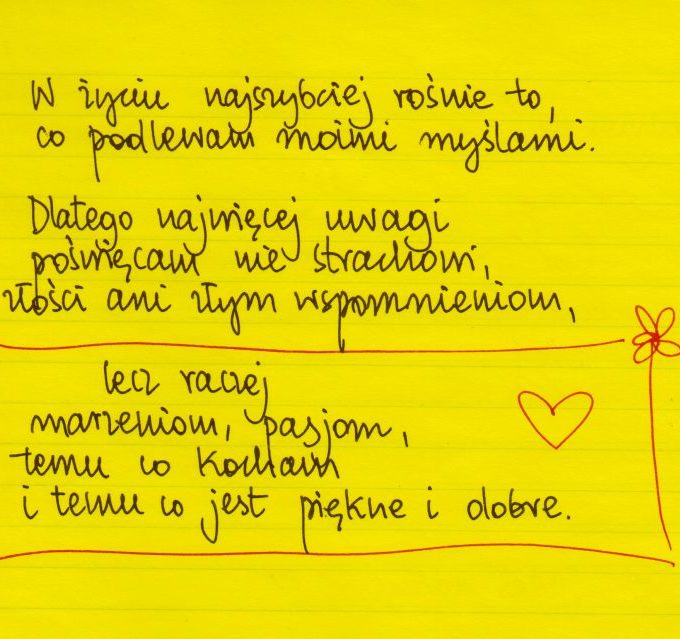 W życiu najszybciej rośnie to,
co podlewam moimi myślami.
Dlatego najwięcej uwagi
poświęcam nie strachowi,
złości ani złym wspomnieniom,
lecz raczej
marzeniom, pasjom,
temu co kocham
i temu co jest piękne i dobre.